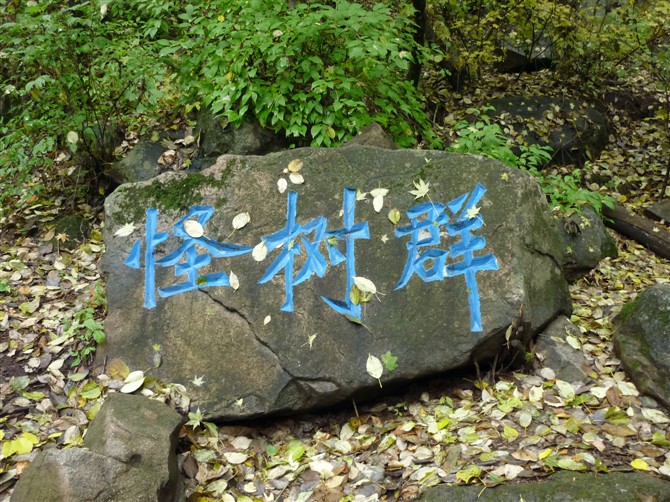 怪树群